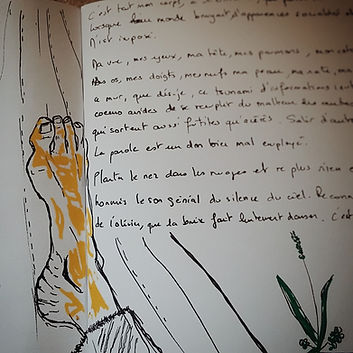 C'est tout mon corps, a
lorsque leur monde bruyant d'apparences
N'est imposé.
Ma vue, mes yeux, ma tête, mes poumons, mon
Mes os, mes doigts, mes nerfs ma peau, ma rate, ma
ce mur, que dis-je, ce tsunami d'informations
coeurs avides de se remplir du malheur des autres
qui sortent aussi futiles qu'acérés. Salir d'autre
La parole est un don bien mal employé.
Planter le nez dans les nuages et ne plus rien e
hormis le son génial du silence du ciel.
de l'olivier, que la brise fait lentement danser. C'est